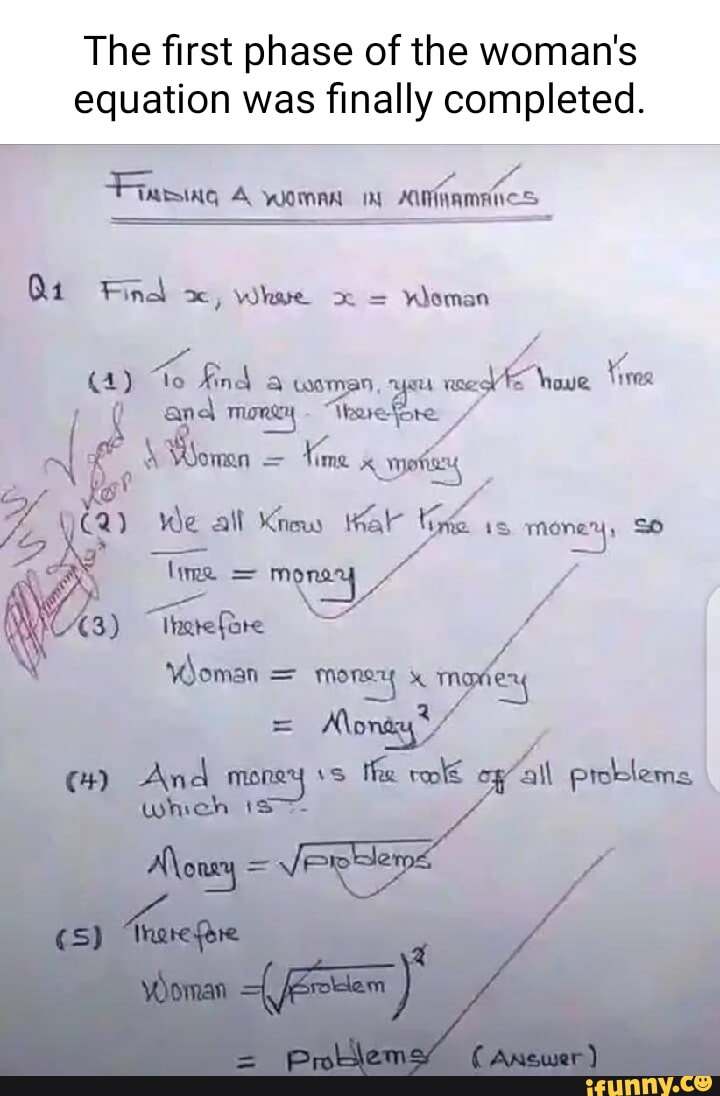 The first phase of the woman's
equation was finally completed.
FINDING A WOMAN IN MATHAMATICS
Q1 Find x, Where x = Woman
(1) To find a woman, you need to have Time
and money. Therefore
Woman = Time x money
5/5 Good
(2) We all Know that Time is money, so
Time = money
(3) Therefore
Woman = money x money
= Money²
(4) And money is the roots of all problems
which is :-
Money = √Problems
(5) Therefore
Woman = (√Problem)²
= Problems (ANSWER)
ifunny.co